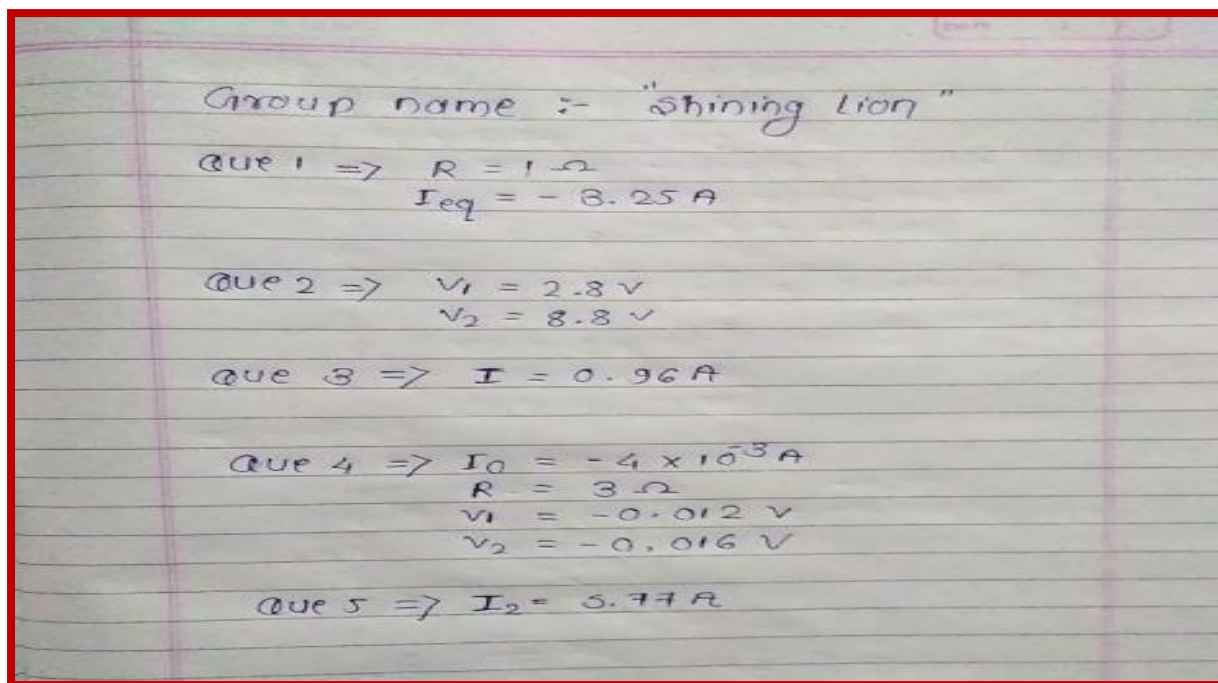 Group name :- "Shining Lion"
Que 1 => R = 1 Ω
Ieq = - 3.25 A
Que 2 => V1 = 2.8 V
V2 = 8.8 V
Que 3 => I = 0.96 A
Que 4 => I0 = -4 × 10⁻³ A
R = 3 Ω
V1 = -0.012 V
V2 = -0.016 V
Que 5 => I2 = 5.77 A